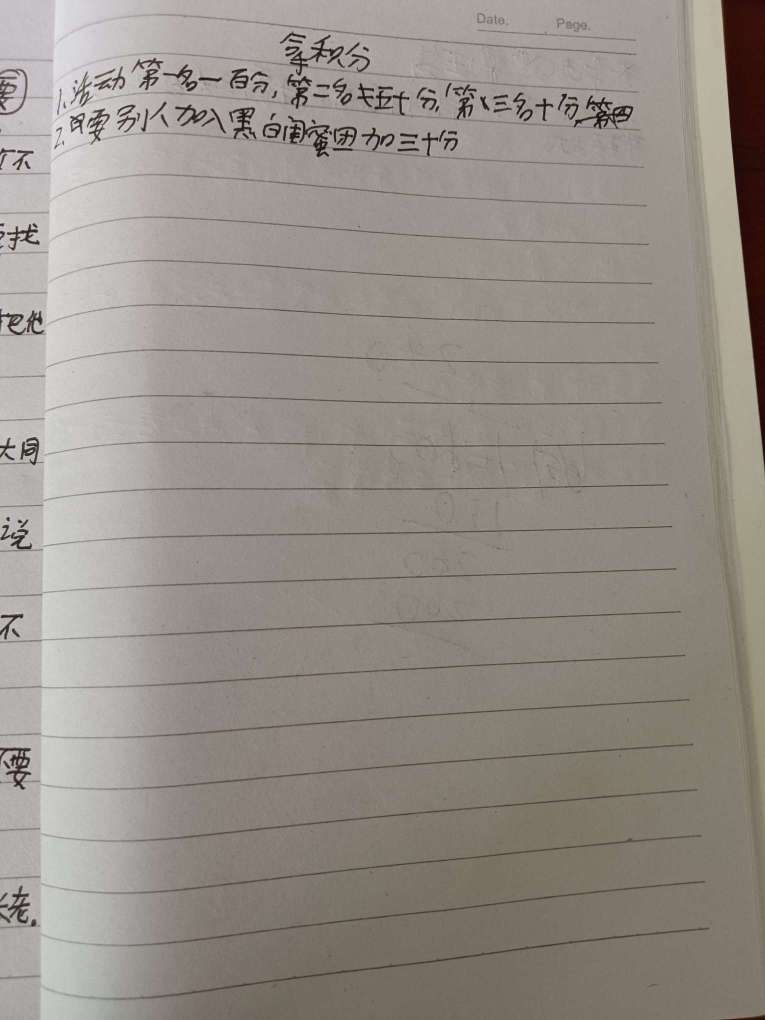 Date. Page.
拿积分
1.活动第一名一百分,第二名五十分,第三名十分
2.只要别人加入黑白闺蜜团加三十分
要
不
找
把他
大同
说
不
不要